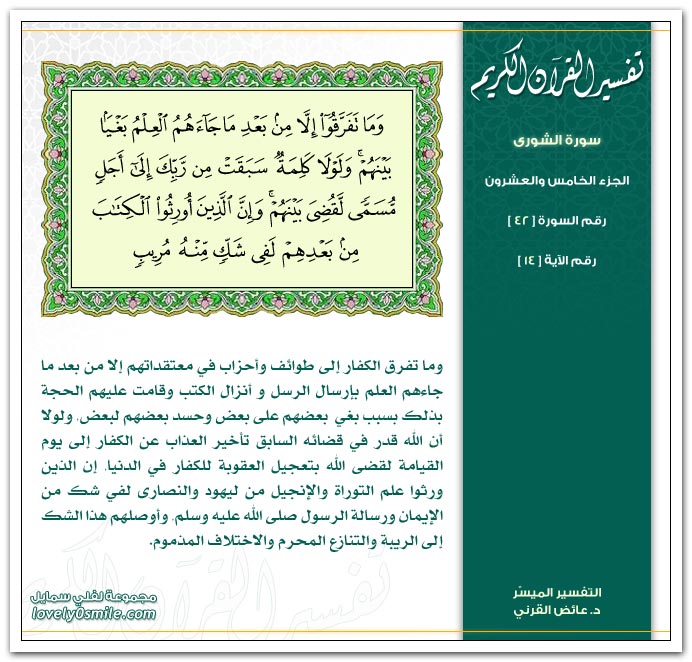 تفسير القرآن الكريم
سورة الشورى
الجزء الخامس والعشرون
رقم السورة [ ٤٢ ]
رقم الآية [ ١٤ ]
وَمَا تَفَرَّقُوٓا۟ إِلَّا مِنۢ بَعْدِ مَا جَآءَهُمُ ٱلْعِلْمُ بَغْيًۢا
بَيْنَهُمْ ۚ وَلَوْلَا كَلِمَةٌ سَبَقَتْ مِن رَّبِّكَ إِلَىٰٓ أَجَلٍ
مُّسَمًّى لَّقُضِىَ بَيْنَهُمْ ۚ وَإِنَّ ٱلَّذِينَ أُورِثُوا۟ ٱلْكِتَٰبَ
مِنۢ بَعْدِهِمْ لَفِى شَكٍّ مِّنْهُ مُرِيبٍ
وما تفرق الكفار إلى طوائف وأحزاب في معتقداتهم إلا من بعد ما
جاءهم العلم بإرسال الرسل و أنزال الكتب وقامت عليهم الحجة
بذلك بسبب بغي بعضهم على بعض وحسد بعضهم لبعض، ولولا
أن الله قدر في قضائه السابق تأخير العذاب عن الكفار إلى يوم
القيامة لقضى الله بتعجيل العقوبة للكفار في الدنيا، إن الذين
ورثوا علم التوراة والإنجيل من ليهود والنصارى لفي شك من
الإيمان ورسالة الرسول صلى الله عليه وسلم، وأوصلهم هذا الشك
إلى الريبة والتنازع المحرم والاختلاف المذموم.
تفسير القرآن الكريم
مجموعة لفلي سمايل
lovely0smile.com
التفسير الميسّر
د. عائض القرني